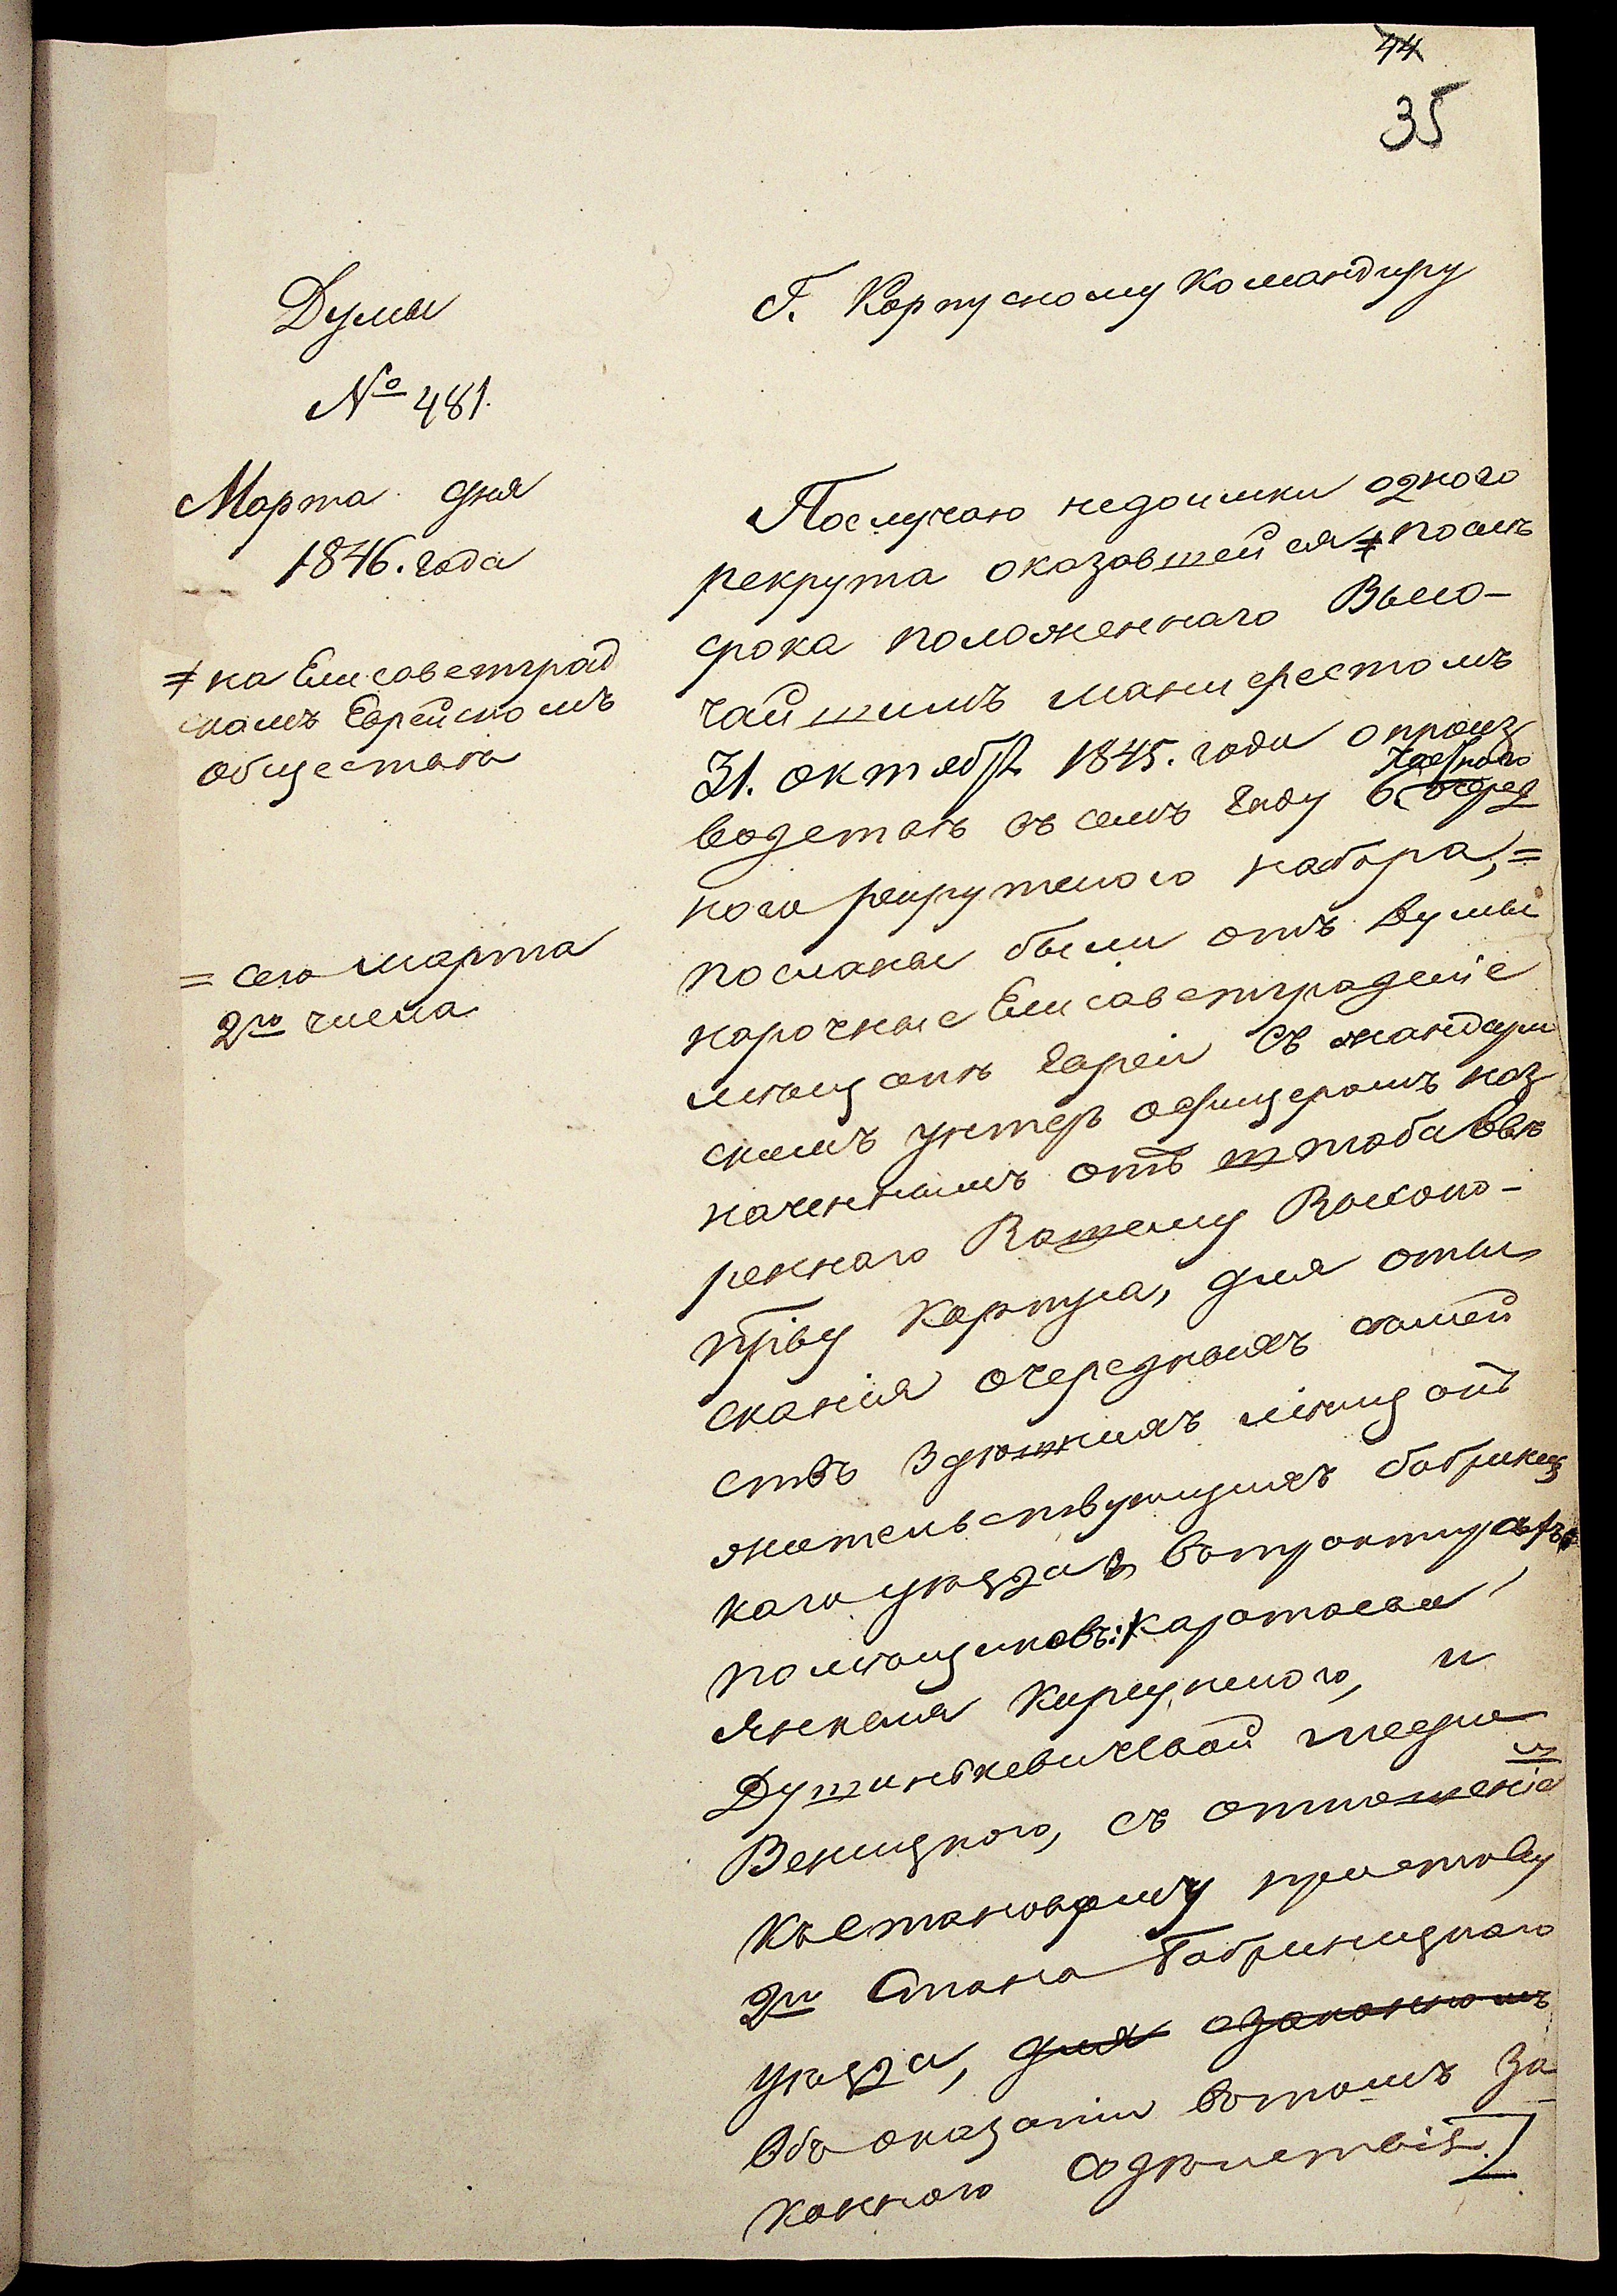 44
35
Думы
№ 481.
Марта дня
1846. года
≠ на Елисаветград
скомъ Еврейскомъ
обществѣ
= сего марта
2го числа
Г. Корпусному Командиру
Послучаю недоимки одного
рекрута оказавшейся ≠ послѣ
срока положеннаго Высо-
чайшимъ манифестомъ
31. октября 1845. года о произ
водствѣ въ семъ году
ного рекрутского набора, =
посланы были отъ думы
нарочные Елисаветградскіе
мѣщане Евреи съ жандарм
скимъ унтеръ офицеромъ наз
наченнымъ отъ штаба ввѣ
реннаго Вашему Высоко-
пр҃ву Корпуса, для отыс
канія очередныхъ семей
ствъ здѣшнихъ мѣщанъ
жительствующихъ бобринец
каго уѣзда въ трактирахъ
помѣщиковъ:
Янкеля и
Душинкевичевой
Веницкого, съ отношеніемъ
Къ становому приставу
2го Стана Бобринецкаго
уѣзда, для
Объ оказаніи вътомъ за
коннаго содѣйствія.